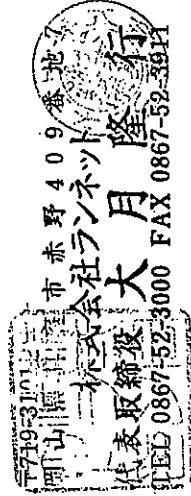 〒719-31
岡山県 市赤野409番地7
株式会社ランネット
代表取締役 大月隆行
TEL 0867-52-3000 FAX 0867-52-3911